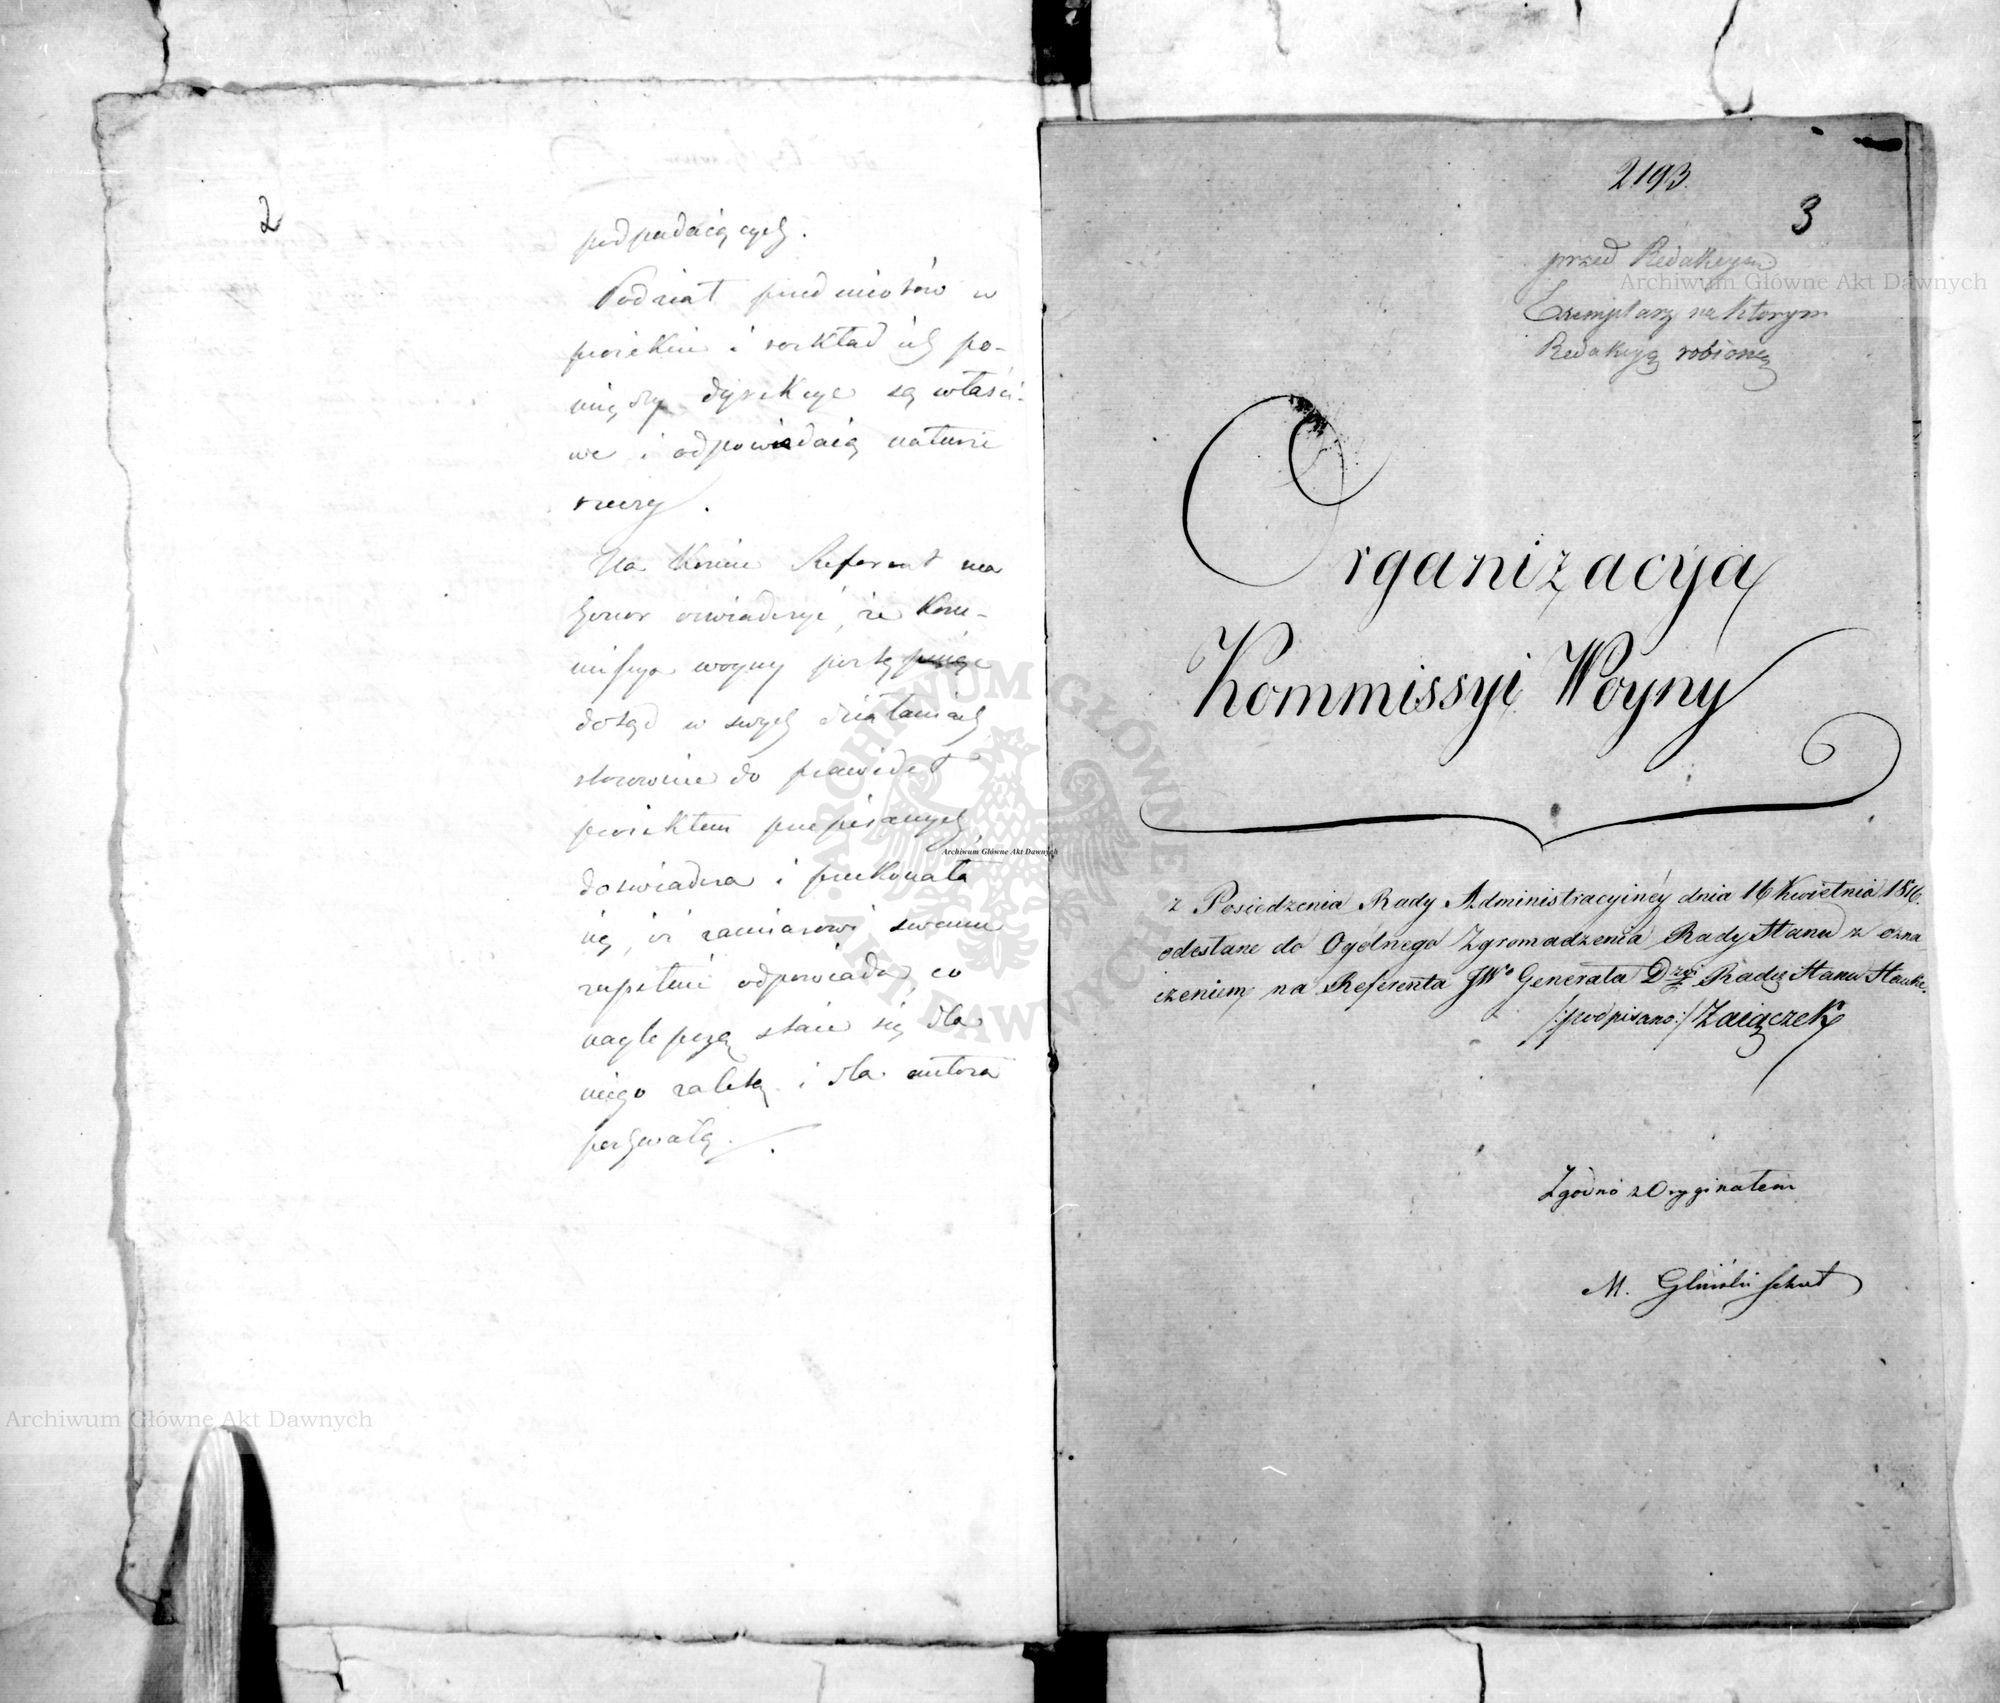 2
podpadaiących.
Podział przedmiotów w
proiekcie i rozkład ich po-
między dyrekcye są właści-
we i odpowiadaią naturze
rzeczy.
Na końcu Referent ma
honor oświadczyć, że Kom-
missya woyny postępuiąc
dotąd w swych działaniach
stosownie do prawideł
proiektem przepisanych,
doświadcza i przekonała
się, iż zamiarowi swemu
zupełnie odpowiada, co
naylepszą staie się dla
niego zaletą i dla autora
pochwałą.
2193.
3
przed Redakcyą
Exemplarz na ktorym
Redakcyą robiono
Organizacyja
Kommissyi Woyny
z Posiedzenia Rady Administracyinéy dnia 16 Kwietnia 1816.
odesłane do Ogólnego Zgromadzenia Rady Stanu z ozna
czeniem na Referenta JWo Generała Radzcę Stanu Hauke.
/:podpisano:/ Zaiączek
Zgodno z Oryginałem
M. Gliński
Archiwum Główne Akt Dawnych
Archiwum Główne Akt Dawnych
Archiwum Główne Akt Dawnych
ARCHIWUM GŁÓWNE AKT DAWNYCH